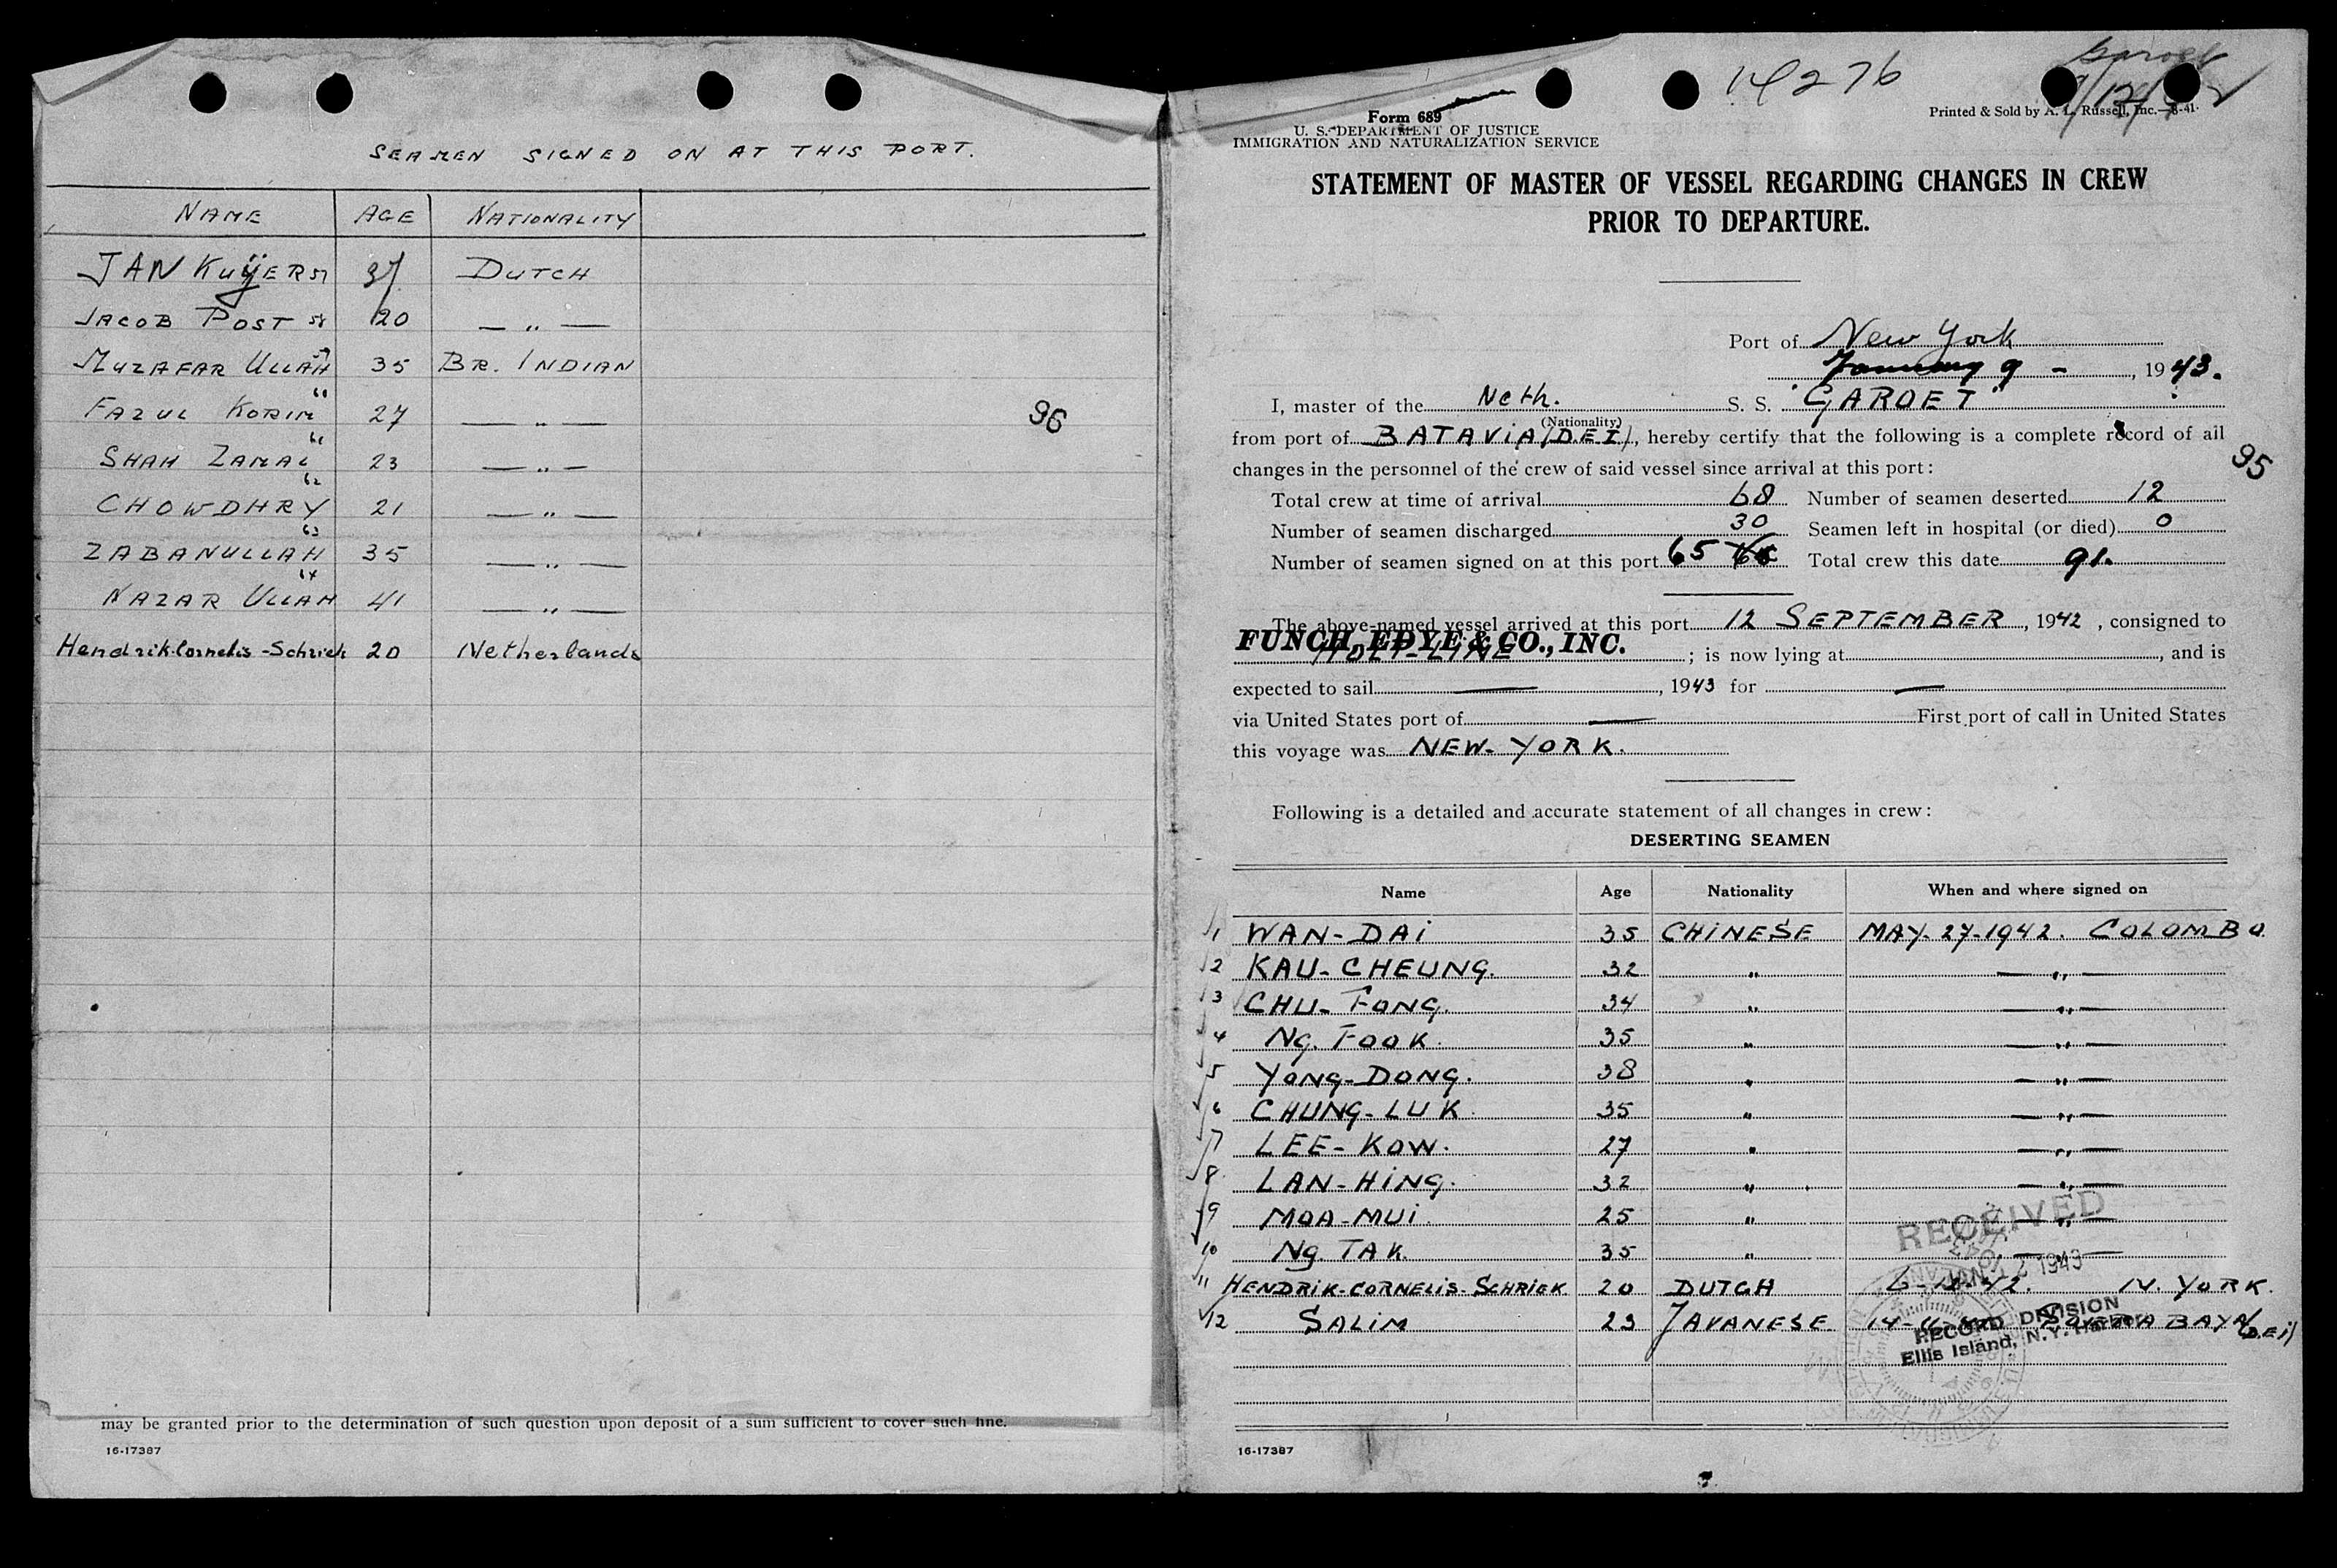 SEAMEN SIGNED ON AT THIS PORT.
NAME AGE NATIONALITY
JAN KUŸERS 57 37 DUTCH
JACOB POST 58 20 — „ —
MUZAFAR ULLAH 59 35 BR. INDIAN
FAZUL KORIM 60 27 — „ —
SHAH ZAMAL 61 23 — „ —
CHOWDHRY 62 21 — „ —
ZABANULLAH 63 35 — „ —
NAZAR ULLAH 64 41 — „ —
Hendrik-Cornelis-Schriek 20 Netherlands
96
may be granted prior to the determination of such question upon deposit of a sum sufficient to cover such fine.
16-17387
14276
Garoet
Printed & Sold by A. L. Russell, Inc.—8-41.
Form 689
U. S. DEPARTMENT OF JUSTICE
IMMIGRATION AND NATURALIZATION SERVICE
STATEMENT OF MASTER OF VESSEL REGARDING CHANGES IN CREW
PRIOR TO DEPARTURE.
Port of New York
January 9 - , 1943.
I, master of the Neth. S. S. "GAROET"
(Nationality)
from port of BATAVIA (D.E.I), hereby certify that the following is a complete record of all
changes in the personnel of the crew of said vessel since arrival at this port:
95
Total crew at time of arrival 68 Number of seamen deserted 12
Number of seamen discharged 30 Seamen left in hospital (or died) 0
Number of seamen signed on at this port 65 Total crew this date 91.
The above-named vessel arrived at this port 12 SEPTEMBER, 1942, consigned to
FUNCH, EDYE & CO., INC. ; is now lying at , and is
expected to sail — , 1943 for —
via United States port of — First port of call in United States
this voyage was NEW-YORK.
Following is a detailed and accurate statement of all changes in crew:
DESERTING SEAMEN
Name Age Nationality When and where signed on
1 WAN-DAI 35 CHINESE MAY-27-1942. COLOMBO.
2 KAU-CHEUNG. 32 „ — „ —
3 CHU-FONG. 34 „ — „ —
4 NG. FOOK. 35 „ — „ —
5 YONG-DONG. 38 „ — „ —
6 CHUNG-LUK. 35 „ — „ —
7 LEE-KOW. 27 „ — „ —
8 LAN-HING. 32 „ — „ —
9 MOA-MUI. 25 „ — „ —
10 NG TAK. 35 „ — „ —
11 HENDRIK-CORNELIS-SCHRIEK 20 DUTCH N. YORK.
12 SALIM 23 JAVANESE SOERABAYA (D.E.I)
RECEIVED
JAN 12 1943
RECORD DIVISION
Ellis Island, N.Y. Harbor
16-17387